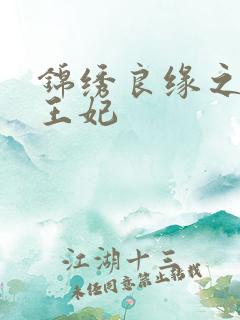 錦绣良缘之
王妃
江湖十三
未经同意禁止转载